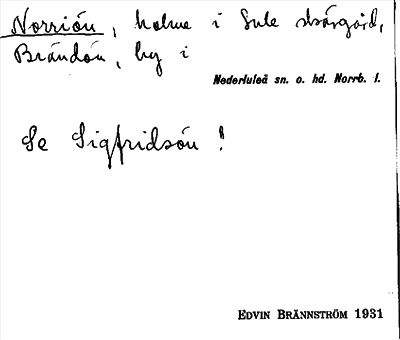 Norriön, holme i Lule skärgård,
Brändön, by i
Nederluleå sn. o. hd. Norrb. l.
Se Sigfridsön!
EDVIN BRÄNNSTRÖM 1931